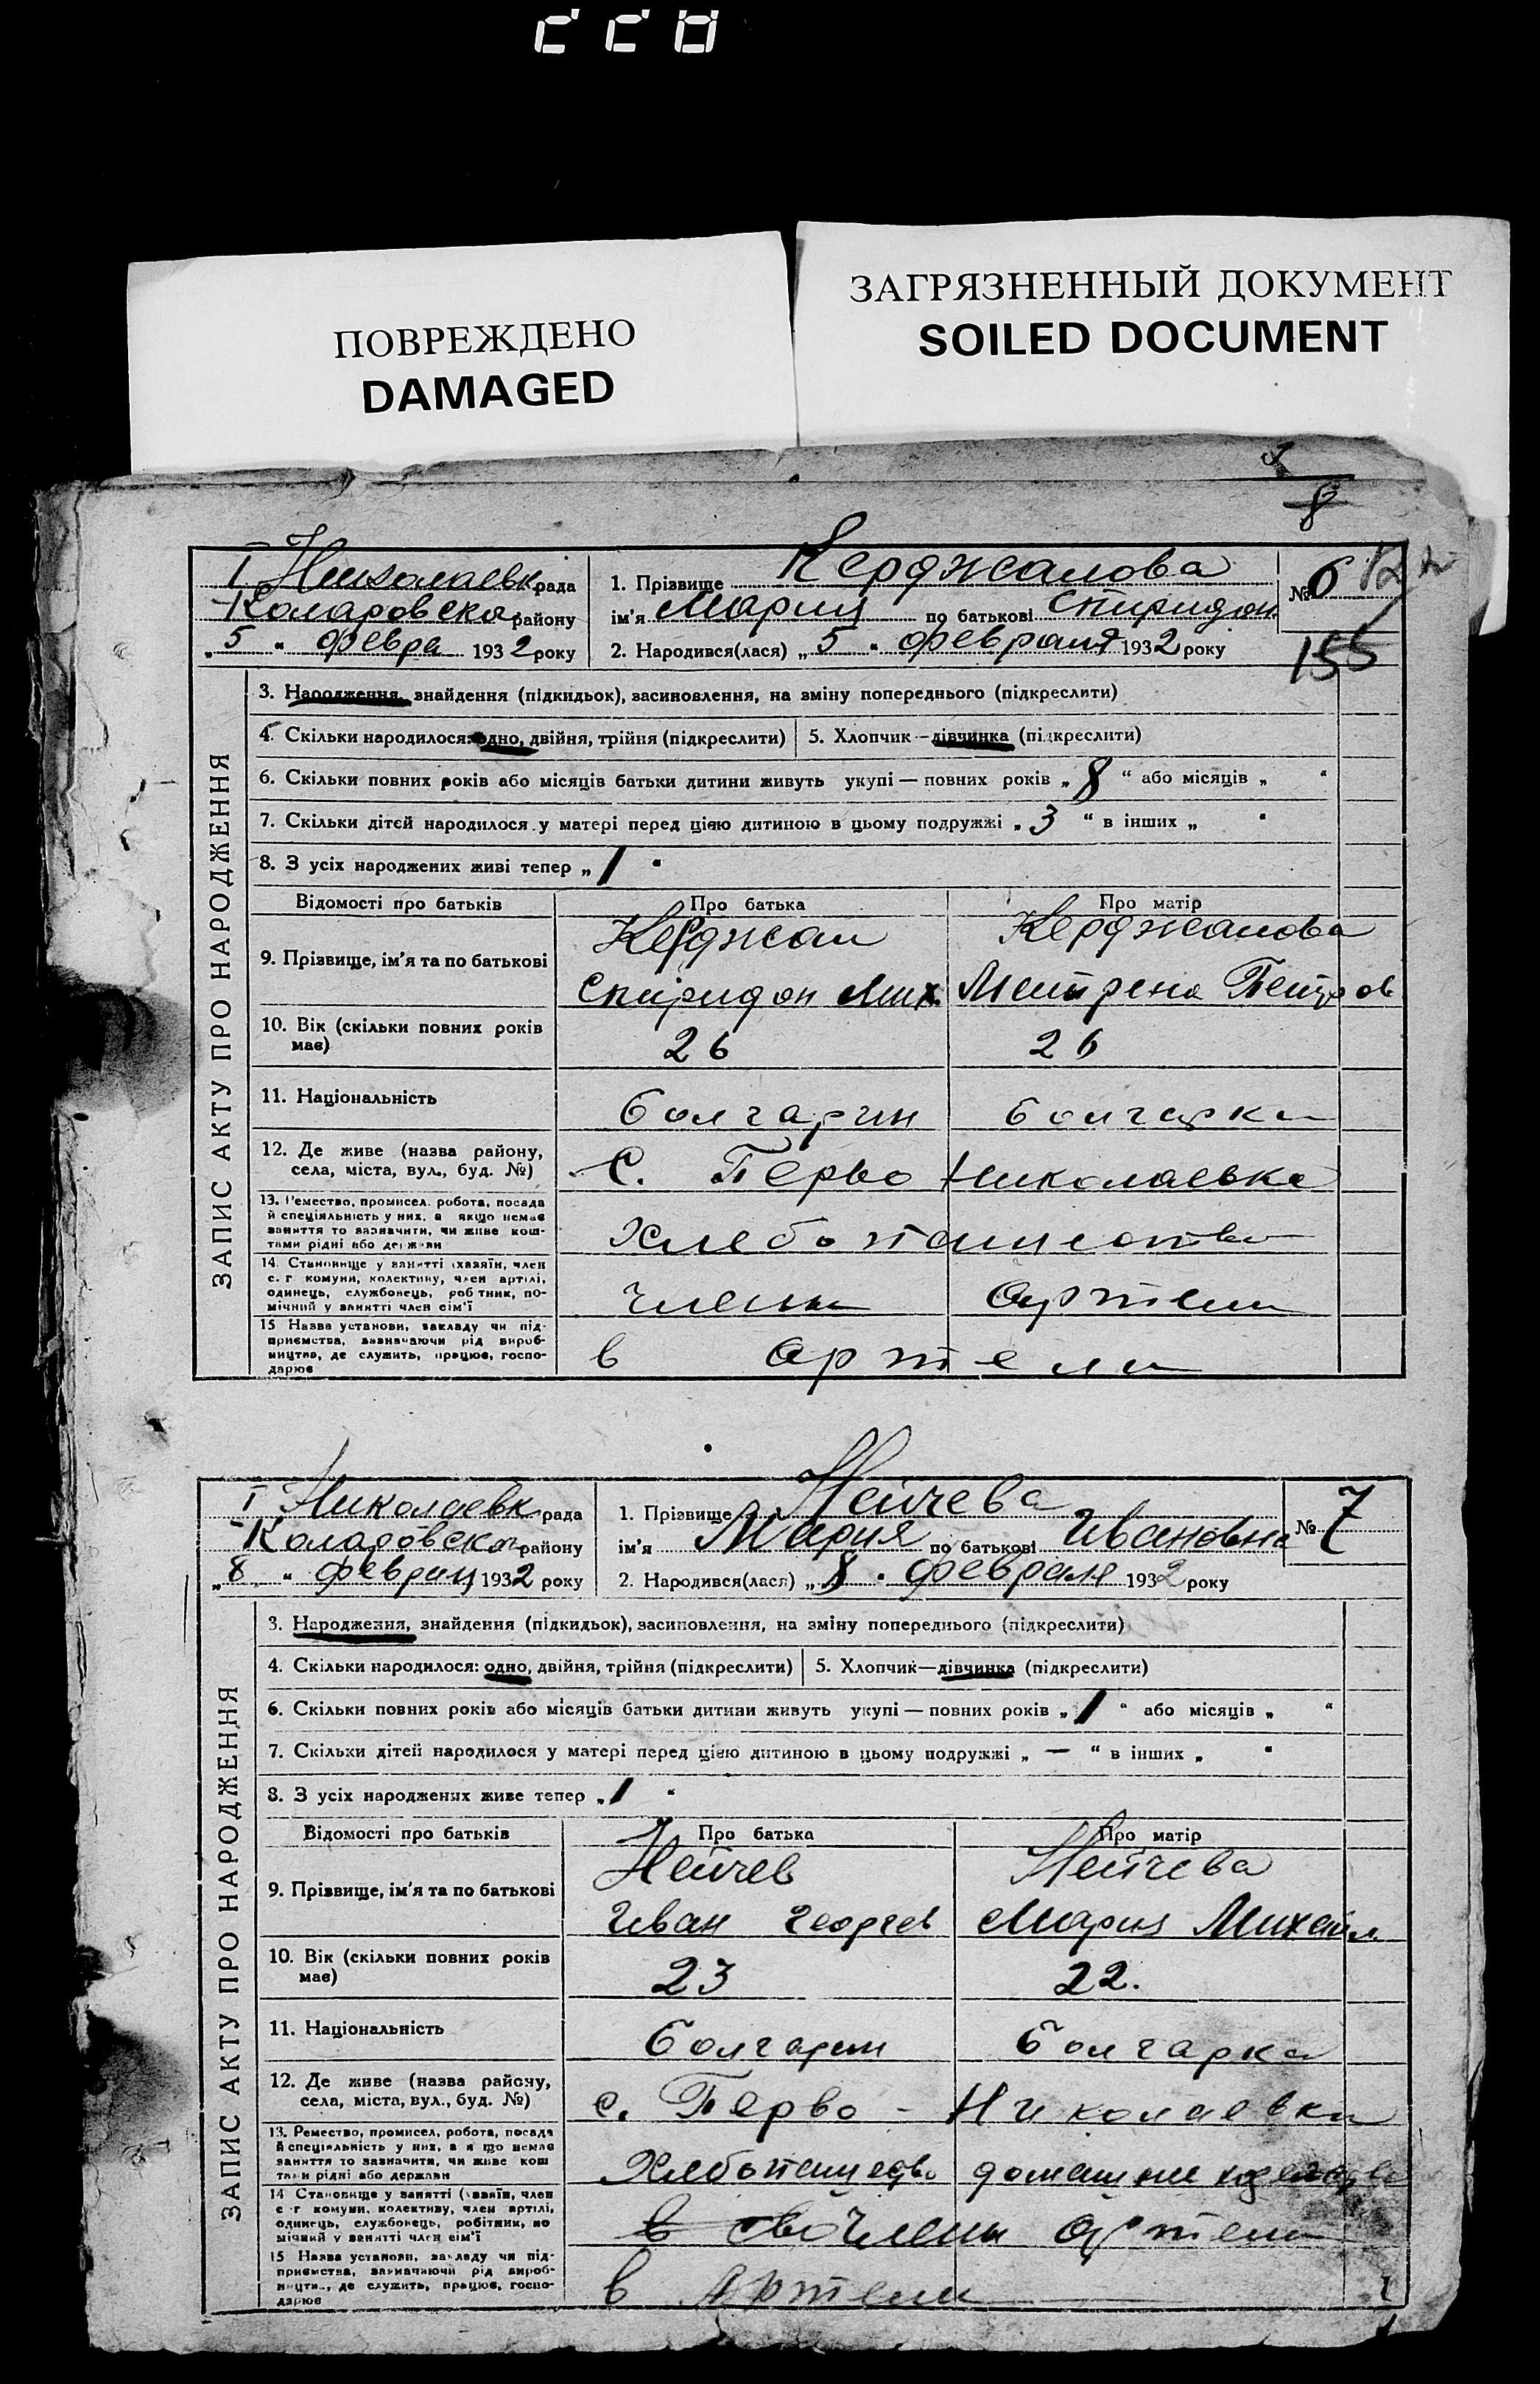 ПОВРЕЖДЕНО
DAMAGED
ЗАГРЯЗНЕННЫЙ ДОКУМЕНТ
SOILED DOCUMENT
8
ЗАПИС АКТУ ПРО НАРОДЖЕННЯ
I Николаевк рада
Коларовска району
„5" февра 1932 року
1. Прізвище Керджалова
ім'я Мария по батькові Спиридон
2. Народився(лася) „5" февраля 1932 року
№ 6
155
3. Народження, знайдення (підкидьок), засиновлення, на зміну попереднього (підкреслити)
4. Скільки народилося: одно, двійня, трійня (підкреслити) 5. Хлопчик—дівчинка (підкреслити)
6. Скільки повних років або місяців батьки дитини живуть укупі — повних років „8" або місяців „ "
7. Скільки дітей народилося у матері перед цією дитиною в цьому подружжі „3" в інших „ "
8. З усіх народжених живі тепер „1"
Відомості про батьків Про батька Про матір
9. Прізвище, ім'я та по батькові Керджал Керджалова
Спиридон Мих. Матрена Петров
10. Вік (скільки повних років має) 26 26
11. Національність болгарин болгарка
12. Де живе (назва району, села, міста, вул., буд. №) С. Перво Николаевка
13. Ремество, промисел, робота, посада
й спеціяльність у них, а якщо немає
заняття то зазначити, чи живе кош-
тами рідні або держави
Хлебопашество
14. Становище у занятті (хазяїн, член
с. г комуни, колективу, член артілі,
одинець, службовець, робітник, по-
мічний у занятті член сім'ї
члены Артели
15 Назва установи, закладу чи під-
приємства, зазначаючи рід вироб-
ництва, де служить, працює, госпо-
дарює
в артели
ЗАПИС АКТУ ПРО НАРОДЖЕННЯ
I Николаевк рада
Коларовском району
„8" феврал 1932 року
1. Прізвище Нейчева
ім'я Мария по батькові Ивановна
2. Народився(лася) „8" февраля 1932 року
№ 7
3. Народження, знайдення (підкидьок), засиновлення, на зміну попереднього (підкреслити)
4. Скільки народилося: одно, двійня, трійня (підкреслити) 5. Хлопчик—дівчинка (підкреслити)
6. Скільки повних років або місяців батьки дитини живуть укупі — повних років „1" або місяців „ "
7. Скільки дітей народилося у матері перед цією дитиною в цьому подружжі „—" в інших „ "
8. З усіх народжених живе тепер „1"
Відомості про батьків Про батька Про матір
9. Прізвище, ім'я та по батькові Нейчев Нейчева
Иван Георгев Мария Михайл
10. Вік (скільки повних років має) 23 22.
11. Національність болгарин болгарка
12. Де живе (назва району, села, міста, вул., буд. №) с. Перво - Николаевка
13. Ремество, промисел, робота, посада
й спеціяльність у них, а якщо немає
заняття то зазначити, чи живе кош
тами рідні або держави
Хлебопашество домашнее
14 Становище у занятті (хазяїн, член
с г комуни, колективу, член артілі,
одинець, службовець, робітник, по
мічний у занятті член сім'ї
члены Артели
15 Назва установи, закладу чи під-
приємства, зазначаючи рід вироб-
ництва, де служить, працює, госпо-
дарює
в Артели